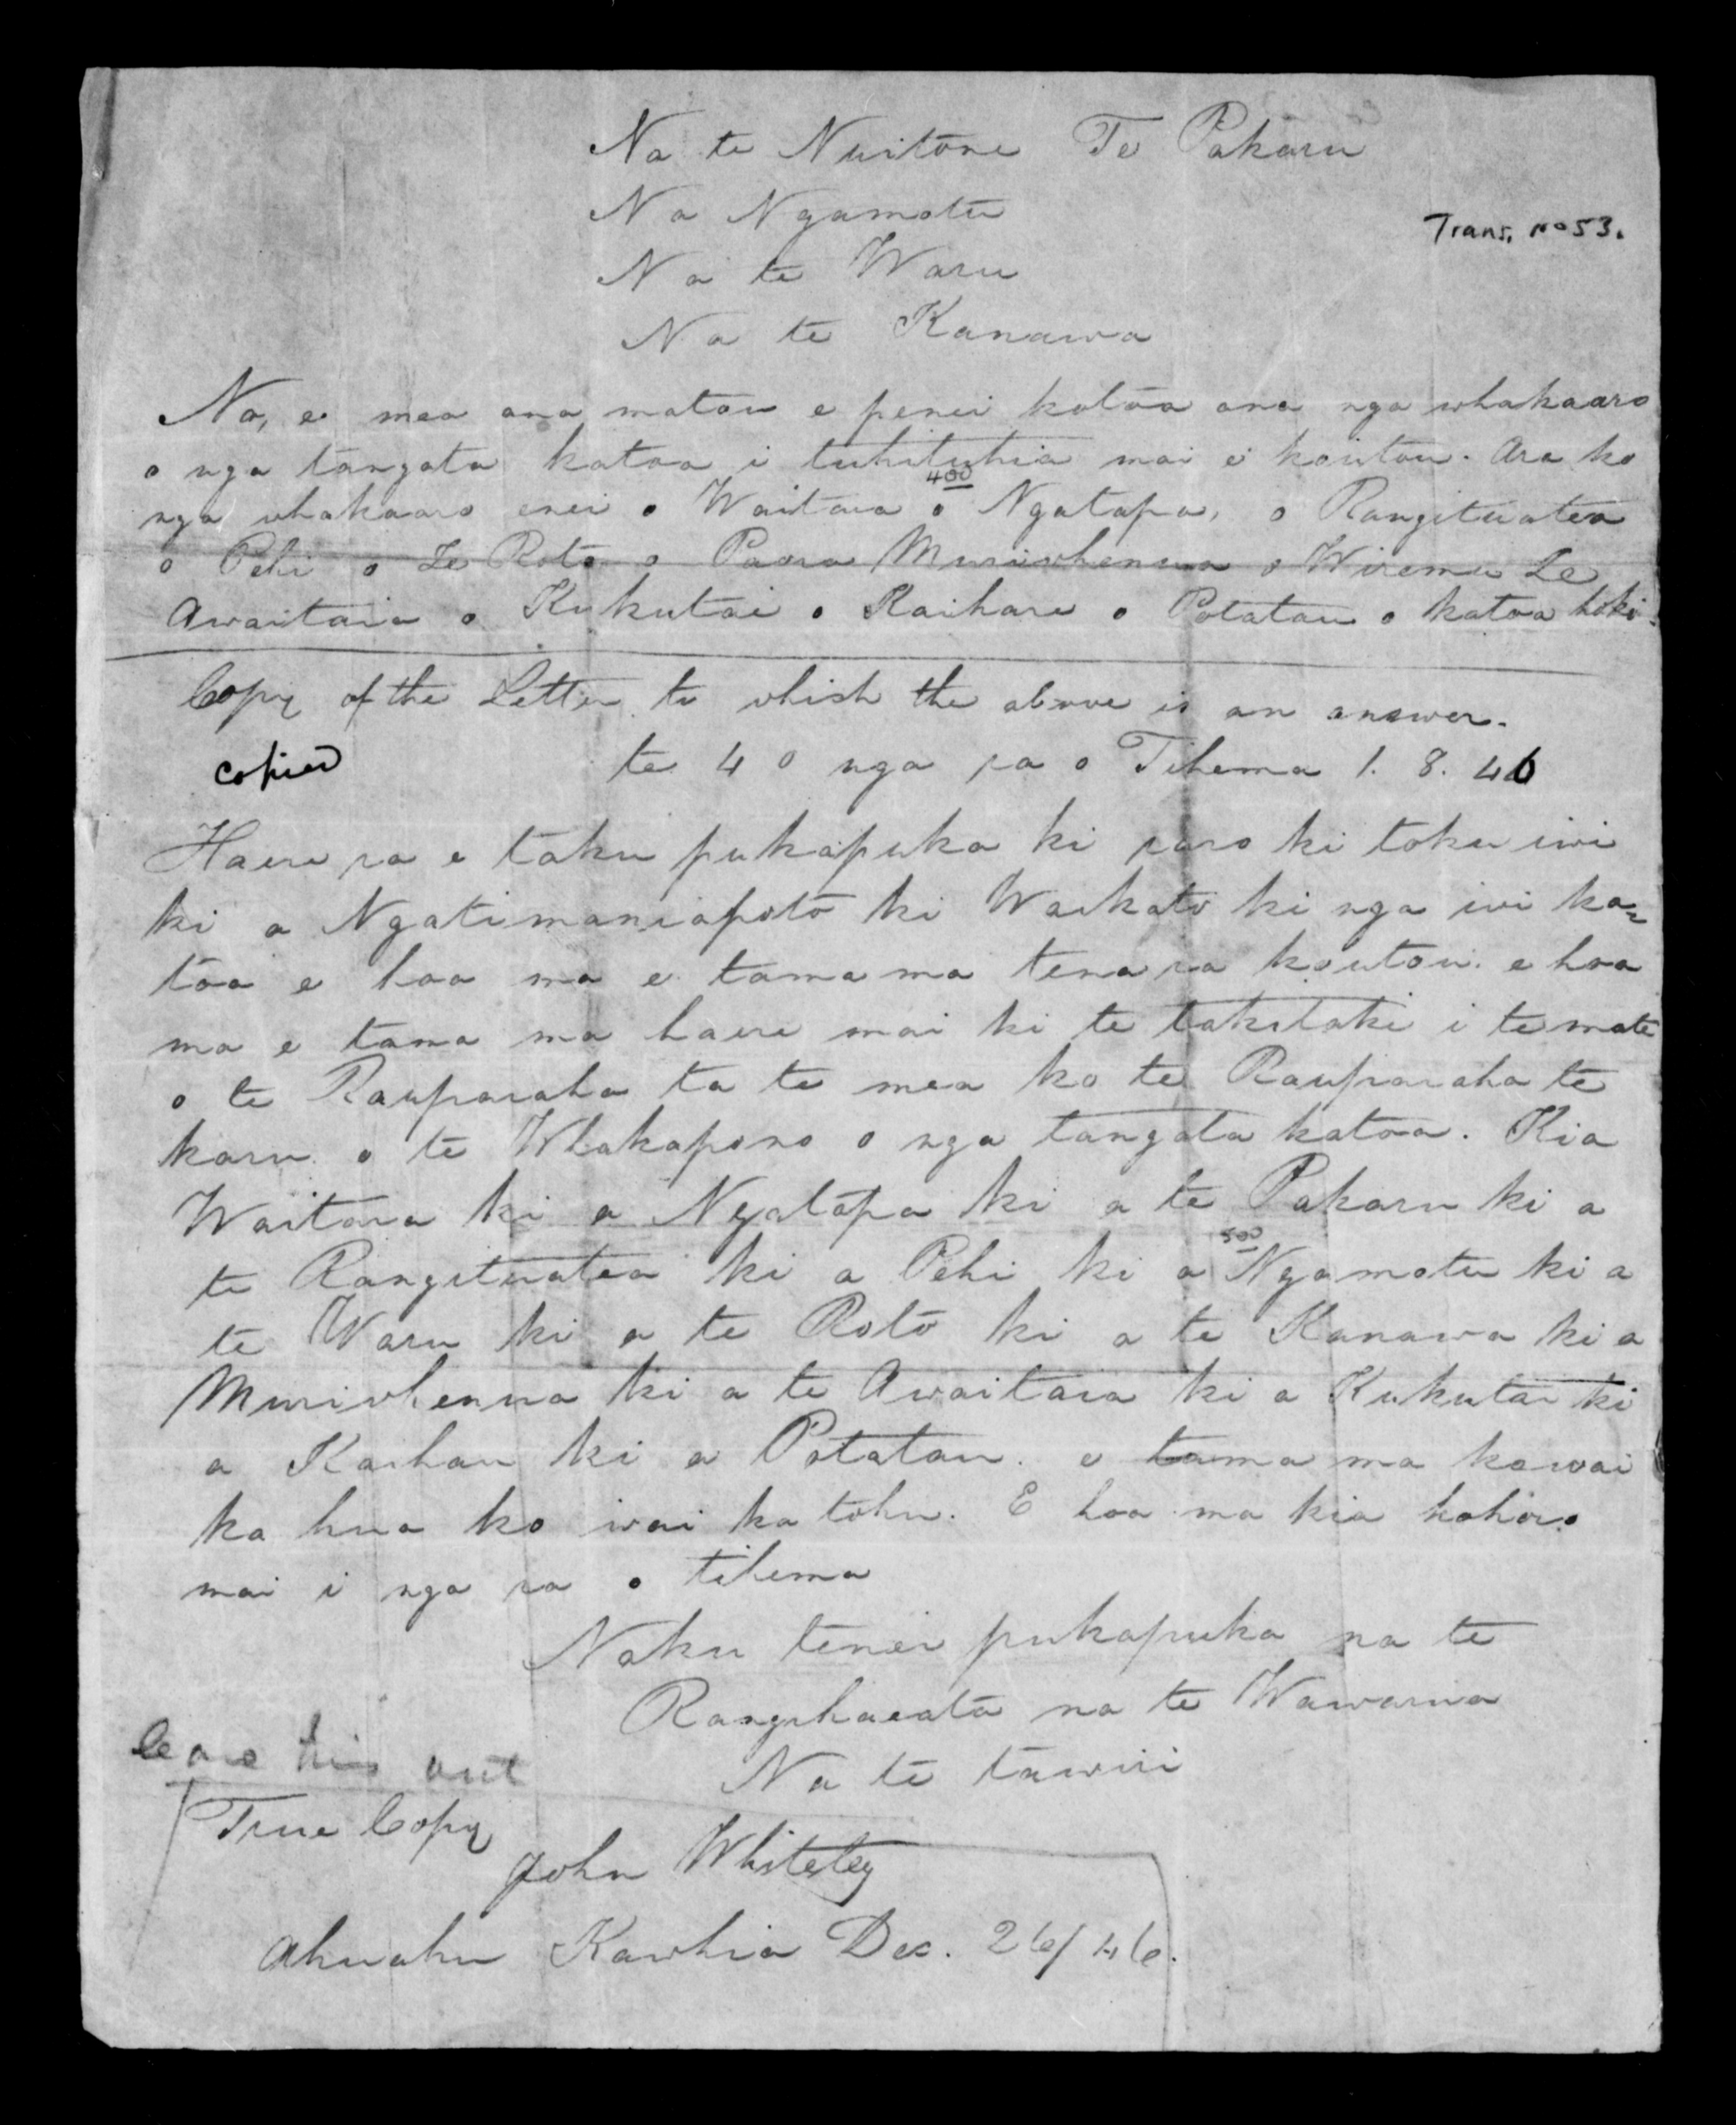 Na te Nuitone Te Pakaru
Na Ngamotu
Trans. No 53.
Na te Waru
Na te Kanawa
Na, e mea ana matou e penei katoa ana nga whakaaro
o nga tangata katoa i tuhituhia mai e koutou. Ara ko
400
nga whakaaro enei o Waitara o Ngatapa, o Rangituatea
o Pehi o Te Roto o Paora Muriwhenua o Wiremu Te
Awaitaia o Kukutai o Kaihau o Potatau o katoa hoki.
Copy of the Letter to which the above is an answer.
copied
te 4 o nga ra o Tihema 1. 8. 46
Haere ra e taku pukapuka ki raro ki toku iwi
ki a Ngatimaniapoto ki Waikato ki nga iwi ka=
toa e hoa ma e tama ma tena ra koutou. e hoa
ma e tama ma haere mai ki te takitaki i te mate
o te Rauparaha ta te mea ko te Rauparaha te
karu o te Whakapono o nga tangata katoa. Kia
Waitara ki a Ngatapa ki a te Pakaru ki a
500
te Rangituatea ki a Pehi ki a Ngamotu ki a
te Waru ki a te Roto ki a te Kanawa ki a
Muriwhenua ki a te Awaitaia ki a Kukutai ki
a Kaihau ki a Potatau. e tama ma kowai
ka hua ko wai ka tohu. E hoa ma kia hohoro
mai i nga ra o tihema
Naku tenei pukapuka na te
Rangihaeata na te Wawarua
Na te tawiri
leave this out
True Copy
John Whiteley
Ahuahu Kawhia Dec. 26/46.